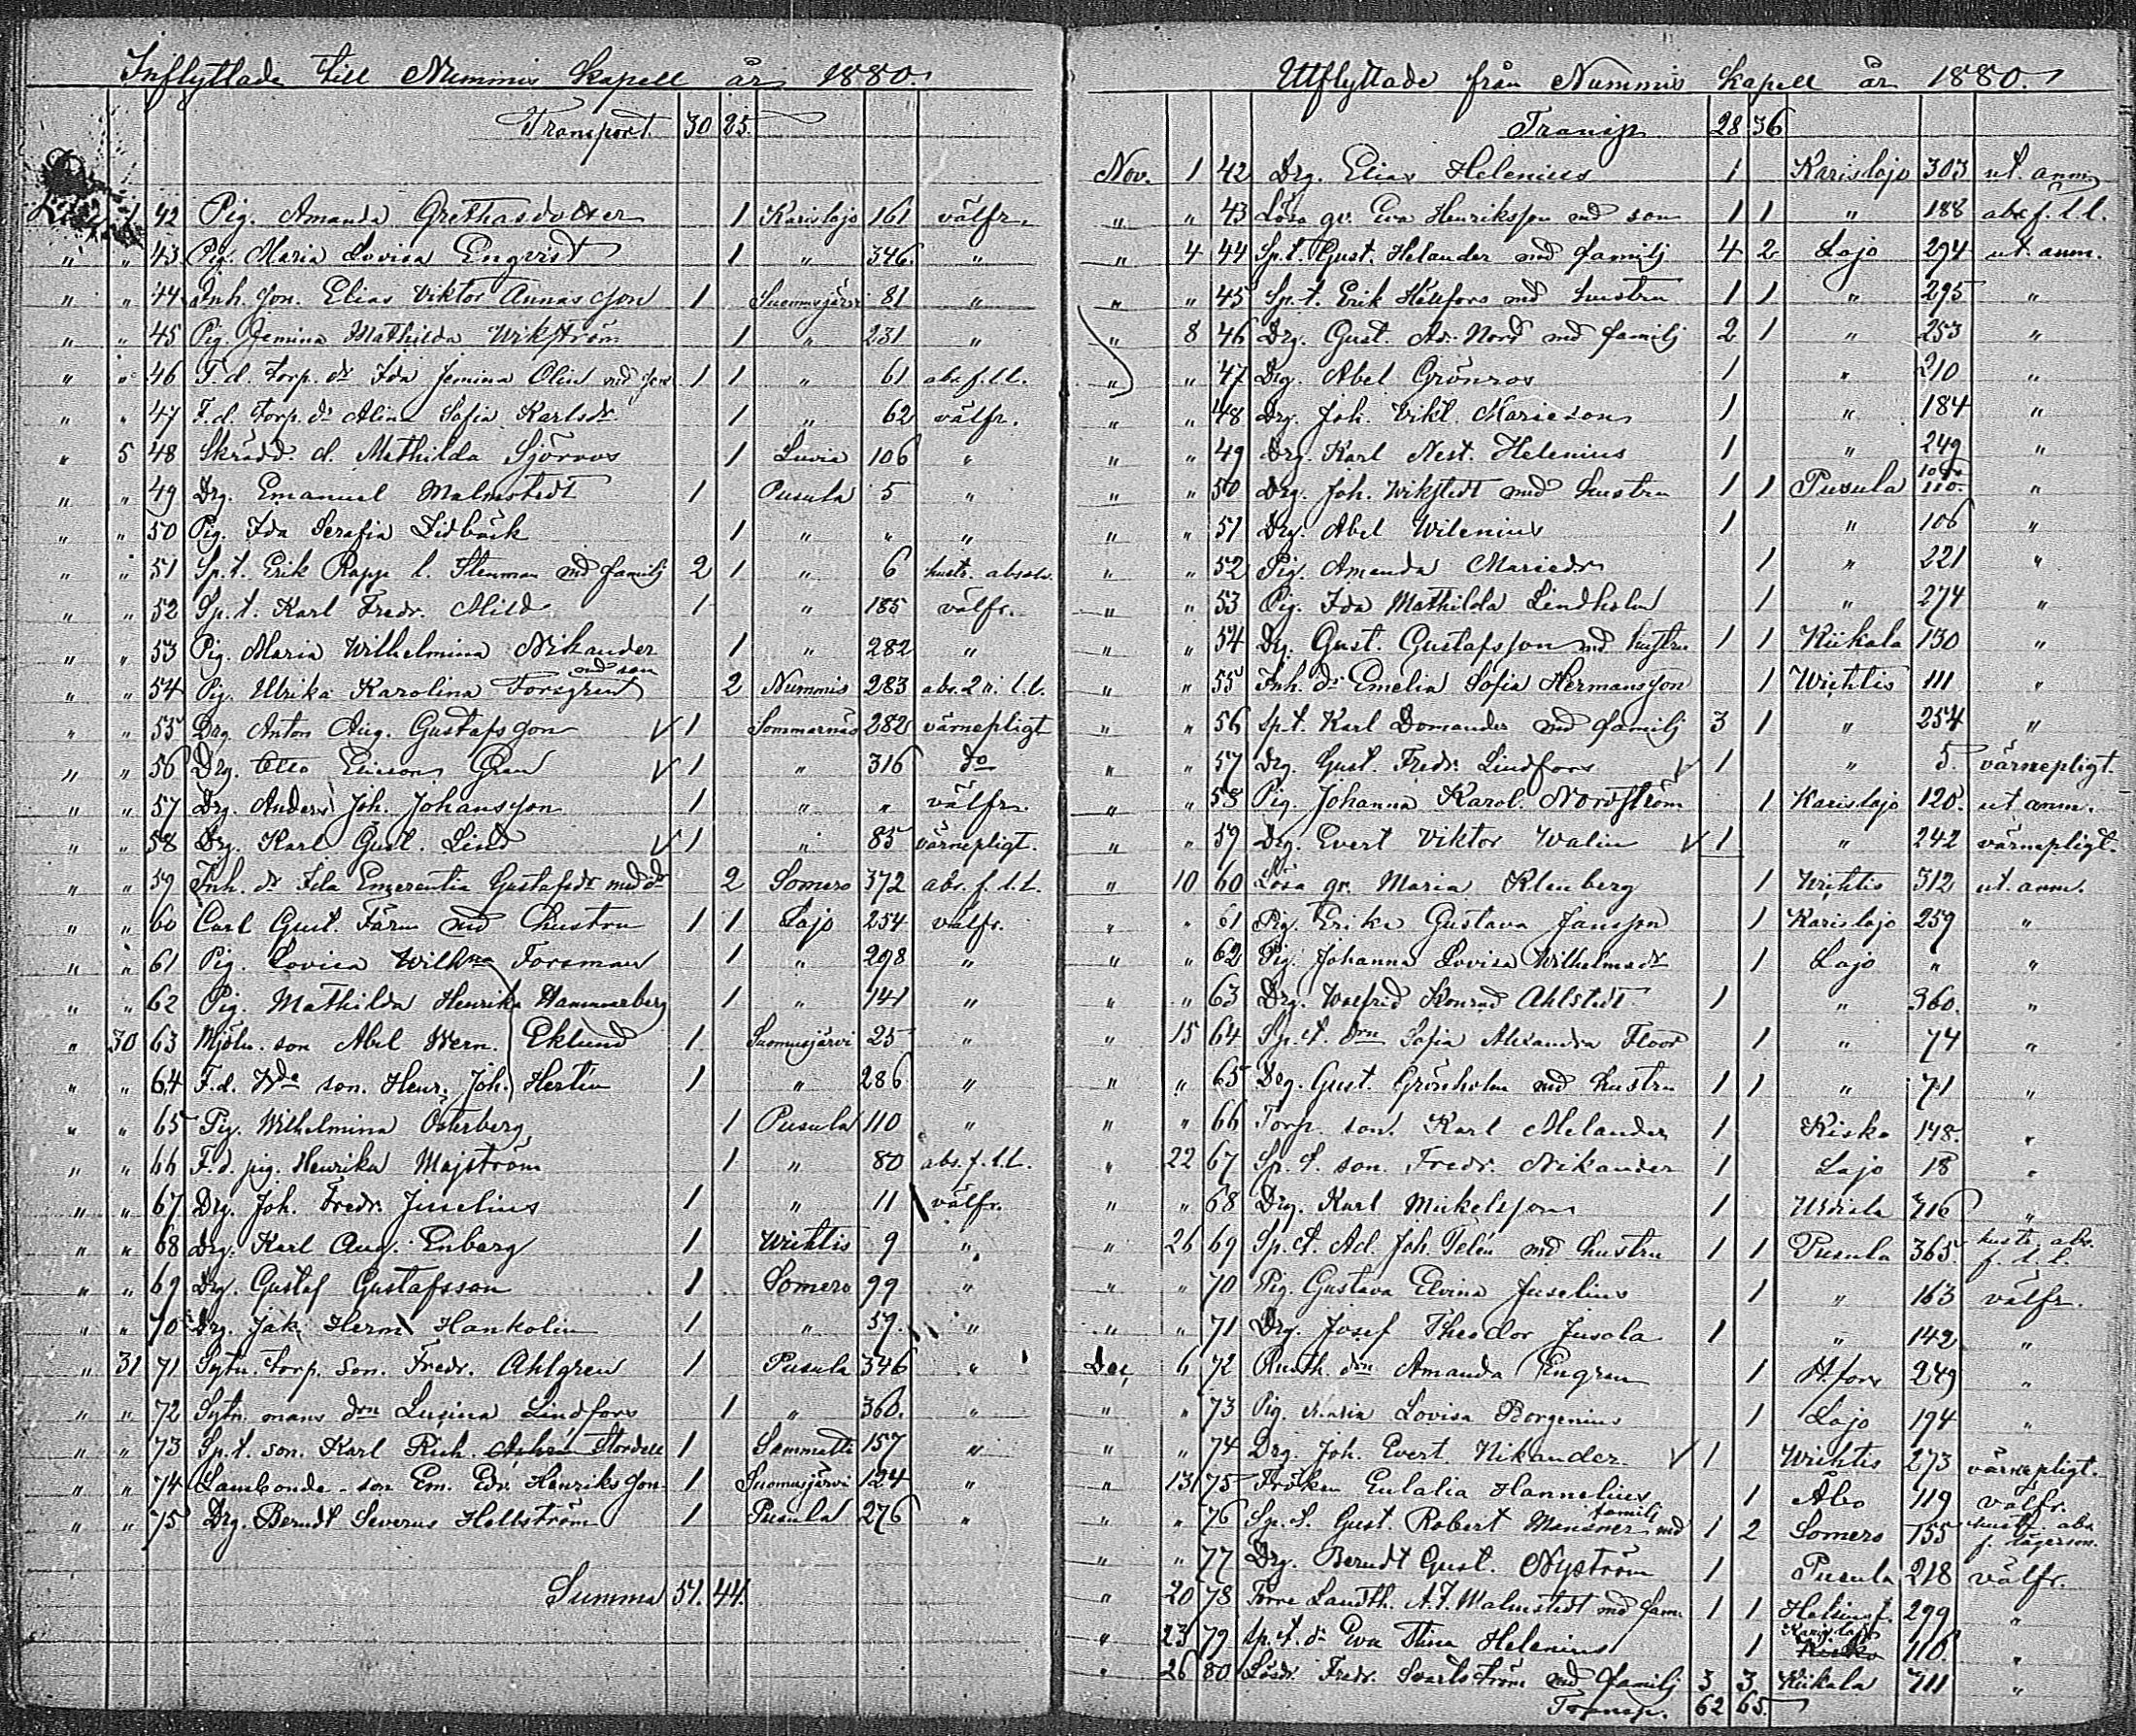 Inflyttade till Nummis Kapell år 1880.
Transport 30 25
42 Pig. Amanda Grethasdotter 1 Karislojo 161 välfr.
" " 43 Pig. Maria Lovisa Enqvist 1 " 346 "
" " 44 Inh. son. Elias Viktor Annasson 1 Suomusjärvi 81 "
" " 45 Pig. Jemina Mathilda Wikström 1 " 231 "
" " 46 F. d. Torp. dr Ida Jemina Olin md son 1 1 " 61 abs. f. l. l.
" " 47 F. d. Torp. dr Alina Sofia Karlsdr 1 " 62 välfr.
" 5 48 Skrädd. d. Mathilda Sjöroos 1 Luvia 106 "
" " 49 Drg. Emanuel Malmstedt 1 Pusula 5 "
" " 50 Pig. Ida Serafia Lidbäck 1 " " "
" " 51 Sp. t. Erik Rapp l. Stenman md familj 2 1 " 6 hustr. absolv.
" " 52 Sp. t. Karl Fredr. Mild 1 " 185 välfr.
" " 53 Pig. Maria Wilhelmina Nikander 1 " 282 "
" " 54 Pig. Ulrika Karolina Forsgren md son 2 Nummis 283 abs. 2 n. l. l.
" " 55 Drg Anton Aug. Gustafsson √ 1 Sommarnäs 282 värnepligt
" " 56 Drg. Otto Ericson Gran √ 1 " 316 do
" " 57 Drg. Anders Joh. Johansson 1 " " välfr.
" " 58 Drg. Karl Gust. Lind √ 1 " 85 värnepligt.
" " 59 Inh. dr Ida Emerentia Gustafsdr med dr 2 Somero 372 abs. f. l. l.
" " 60 Carl Gust. Färm md hustru 1 1 Lojo 254 välfr.
" " 61 Pig. Lovisa Wilhna Forsman 1 " 298 "
" " 62 Pig. Mathilda Henrika Hammarberg 1 " 141 "
" 30 63 Mjöln. son Abel Wern. Eklund 1 Suomusjärvi 25 "
" " 64 F. d. Wde son. Henr. Joh. Hertin 1 " 286 "
" " 65 Pig. Wilhelmina Österberg 1 Pusula 110 "
" " 66 F. d. pig. Henrika Majström 1 " 80 abs. f. l. l.
" " 67 Drg. Joh. Fredr. Juselius 1 " 11 välfr.
" " 68 Drg. Karl Aug. Enberg 1 Wichtis 9 "
" " 69 Drg. Gustaf Gustafsson 1 Somero 99 "
" " 70 Drg. Jak. Herm. Hankolin 1 " 59. "
" 31 71 Sytn. Torp. son. Fredr. Ahlgren 1 Pusula 346 "
" " 72 Sytn. mans don Lusina Lindfors 1 " 360. "
" " 73 Sp. t. son. Karl Rich. Stordell 1 Sammatti 157 "
" " 74 Lambonde-son Em. Edv. Henriksson 1 Suomusjärvi 124 "
" " 75 Drg. Berndt Severus Hellström 1 Pusula 276 "
Summa 51. 44.
Utflyttade från Nummis Kapell år 1880.
Transp 28 36
Nov. 1 42 Drg. Elias Helenius 1 Karislojo 303 ut. anm.
" " 43 Lösa qv. Eva Henriksson md son 1 1 " 188 abs. f. l. l.
" 4 44 Sp. t. Gust. Helander md familj 4 2 Lojo 294 ut anm.
" " 45 Sp. t. Erik Hellfors md hustru 1 1 " 295 "
" 8 46 Drg. Gust. Ad. Nord md familj 2 1 " 253 "
" " 47 Drg. Abel Grönroos 1 " 210 "
" " 48 Drg. Joh. Vikt. Marieson 1 " 184 "
" " 49 Drg. Karl Nest. Helenius 1 " 249 "
" " 50 Drg. Joh. Wikstedt med hustru 1 1 Pusula 110. "
" " 51 Drg. Abel Wilenius 1 " 106 "
" " 52 Pig. Amanda Mariedr 1 " 221 "
" " 53 Pig. Ida Mathilda Lindholm 1 " 274 "
" " 54 Drg. Gust. Gustafsson md hustru 1 1 Kiikala 130 "
" " 55 Inh. dr Emelia Sofia Hermansson 1 Wichtis 111 "
" " 56 Sp. t. Karl Domander md familj 3 1 " 254 "
" " 57 Drg. Gust. Fredr. Lindfors √ 1 " 5. värnepligt.
" " 58 Pig. Johanna Karol. Nordström 1 Karislojo 120. ut anm.
" " 59 Drg. Evert Viktor Walin √ 1 " 242 värnepligt.
" 10 60 Lösa qv. Maria Klinberg 1 Wichtis 312 ut. anm.
" " 61 Pig. Erika Gustava Jansson 1 Karislojo 259 "
" " 62 Pig. Johanna Lovisa Wilhelmsdr 1 Lojo " "
" " 63 Drg. Walfrid Konrad Ahlstedt 1 " 360. "
" 15 64 Sp. t. don Sofia Alexandra Floor 1 " 74 "
" " 65 Drg. Gust. Grönholm md hustru 1 1 " 71 "
" " 66 Torp. son. Karl Melander 1 Kisko 148. "
" 22 67 Sp. t. son. Fredr. Nikander 1 Lojo 18 "
" " 68 Drg. Karl Mickelsson 1 Urdiala 716 "
" 26 69 Sp. t. Ad. Joh. Telén md hustru 1 1 Pusula 365 hustr. abs. f. l. l.
" " 70 Pig. Gustava Elvina Juselius 1 " 163 välfr.
" " 71 Drg. Josef Theodor Jusola 1 " 142 "
Dec. 6 72 don Amanda Engren 1 H.fors 249 "
" " 73 Pig. Maria Lovisa Borgenius 1 Lojo 194 "
" " 74 Drg. Joh. Evert Nikander √ 1 Wichtis 273 värnepligt.
" 13 75 Fröken Eulalia Hannelius 1 Åbo 119 välfr.
" " 76 Sp. t. Gust. Robert md familj 1 2 Somero 155 hustr. abs. f. lägersm.
" " 77 Drg. Berndt Gust. Nyström 1 Pusula 218 välfr.
" 20 78 Förre Landth. A. F. Malmstedt md fam. 1 1 Helsingf. 299 "
" 23 79 Sp. t. dr Eva Stina Helenius 1 Karislojo Kisko 110. "
" 26 80 Lösdr. Fredr. Svartström md familj 3 3 Kiikala 711 "
Transp. 62 65